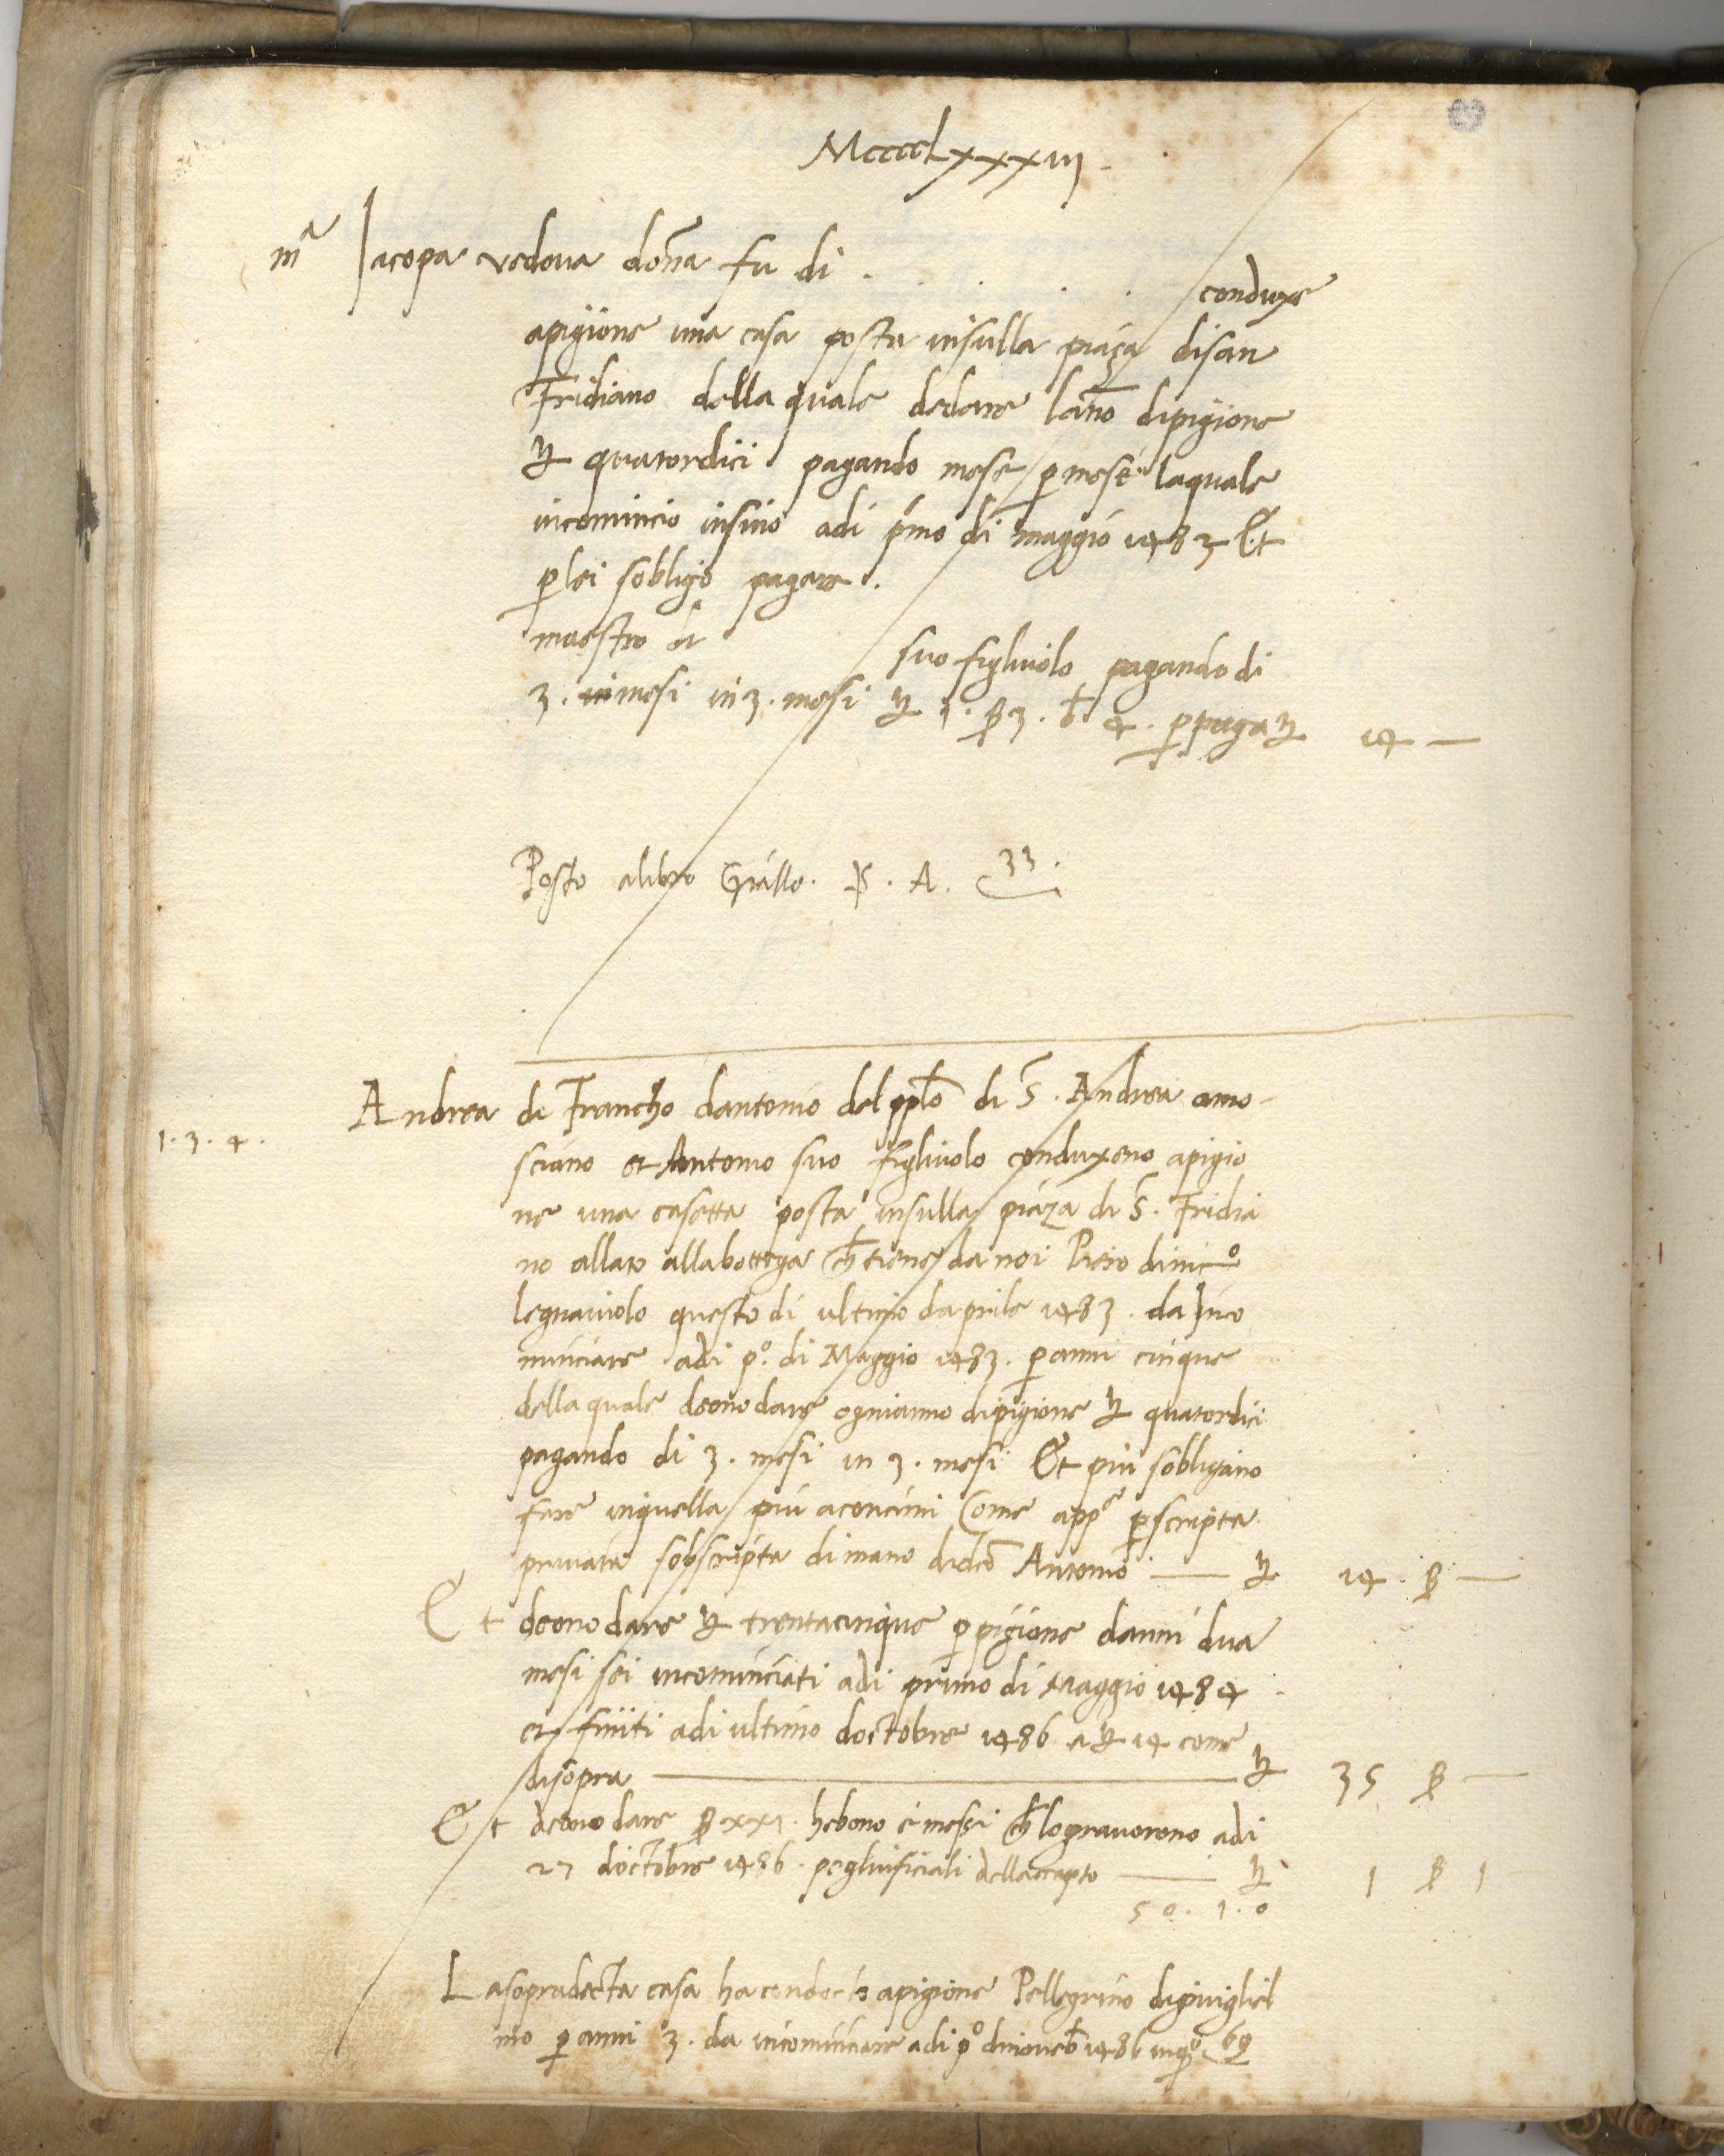 MccccLxxxiij
mᵃ Jacopa vedova dōna fu di . . . . conduxe
apigione una casa posta insulla piaza disan
Fridiano della quale dedare lāno dipigione
₶ quatordici pagando mese p mese laquale
incomincio insino adi p̄mo di maggio 1483 Et
p lei sobligo pagare .
maestro di suo figliuolo pagando di
3. mesi in 3. mesi ₶ 3. β 3. 4. p paga ₶ 14 —
Posto alibro Giallo. S. A. 33.
Andrea di Francho dantonio del pplo di S. Andrea amo
1. 3. 4.
sciano et Antonio suo figliuolo conduxeno apigio
ne una casetta posta insulla piaza di S. Fridia
no allato allabottega ch̄ tiene da noi Piero dinicº
legnaiuolo questo di ultimo daprile 1483. da Inco
minciare adi pº. di Maggio 1483. p anni cinque
della quale deono dare ognianno dipigione ₶ quatordici
pagando di 3. mesi in 3. mesi Et piu sobligano
fare inquella piu aconcimi Come appᵉ p scripta
privata sobscripta dimano didc̄o Antonio — ₶ 14 . β —
Et deono dare ₶ trentacinque p pigione danni dua
mesi sei incominciati adi primo di Maggio 1484
et finiti adi ultimo doctobre 1486 a ₶ 14 come
disopra — ₶ 35 β —
Et deono dare β xxi. hebono e messi ch̄ lo gravorono adi
27 doctobre 1486. pegliuficiali — ₶ 1 β 1
50. 1. 0
Lasopradecta casa ha condocto apigione Pellegrino digiuigliel
mo p anni 3. da incominciare adi pº dinoveb̄ 1486 inqº 69